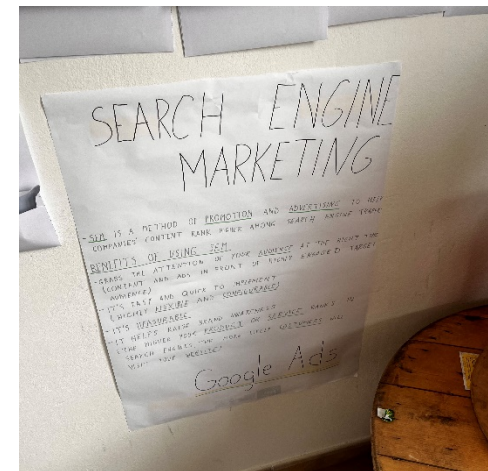 SEARCH ENGINE
MARKETING
- SEM IS A METHOD OF PROMOTION AND ADVERTISING TO HELP
COMPANIES' CONTENT RANK HIGHER AMONG SEARCH ENGINE
BENEFITS OF USING SEM
- GRABS THE ATTENTION OF YOUR AUDIENCE AT THE RIGHT TIME
(CONTENT AND ADS IN FRONT OF RIGHT TARGET
AUDIENCE)
- IT'S FAST AND QUICK TO IMPLEMENT
(HIGHLY FLEXIBLE AND CONFIGURABLE)
- IT'S MEASURABLE
- IT HELPS RAISE BRAND AWARENESS
(THE HIGHER YOUR PRODUCT OR SERVICE RANKS IN
SEARCH ENGINES, THE MORE LIKELY CUSTOMERS WILL
VISIT YOUR WEBSITE)
Google Ads